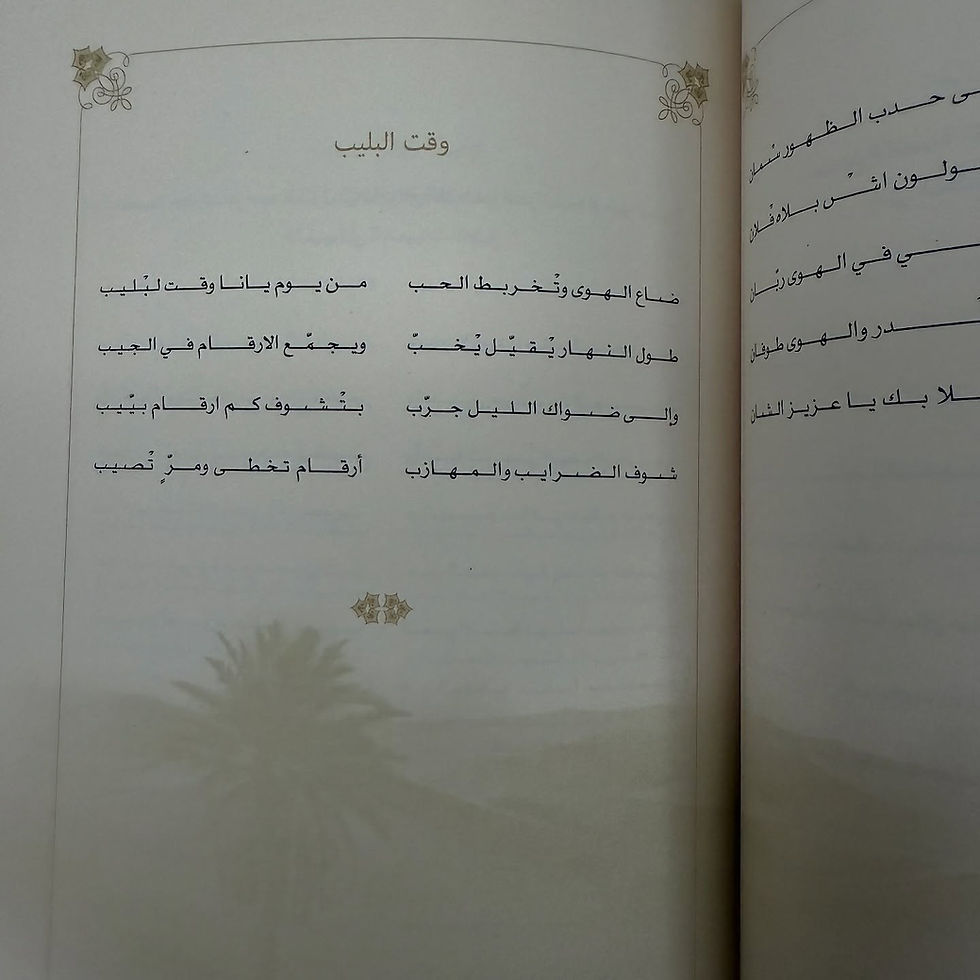 وقت البليب
ضاع الهوى وتْخربط الحب من يوم يانا وقت لبْليب
طول النهار يْقيّل يْخبّ ويجمّع الارقام في الجيب
وإلى ضواك الليل جرّب بتْشوف كم ارقام بيّيب
شوف الضرايب والمهازب أرقام تخطى ومرٍّ تْصيب
ـى حدب الظهور سْمان
ـولون اشْ بلاه فْلان
ـي في الهوى ربّان
ـدر والهوى طوفان
ـلا بك يا عزيز الشان